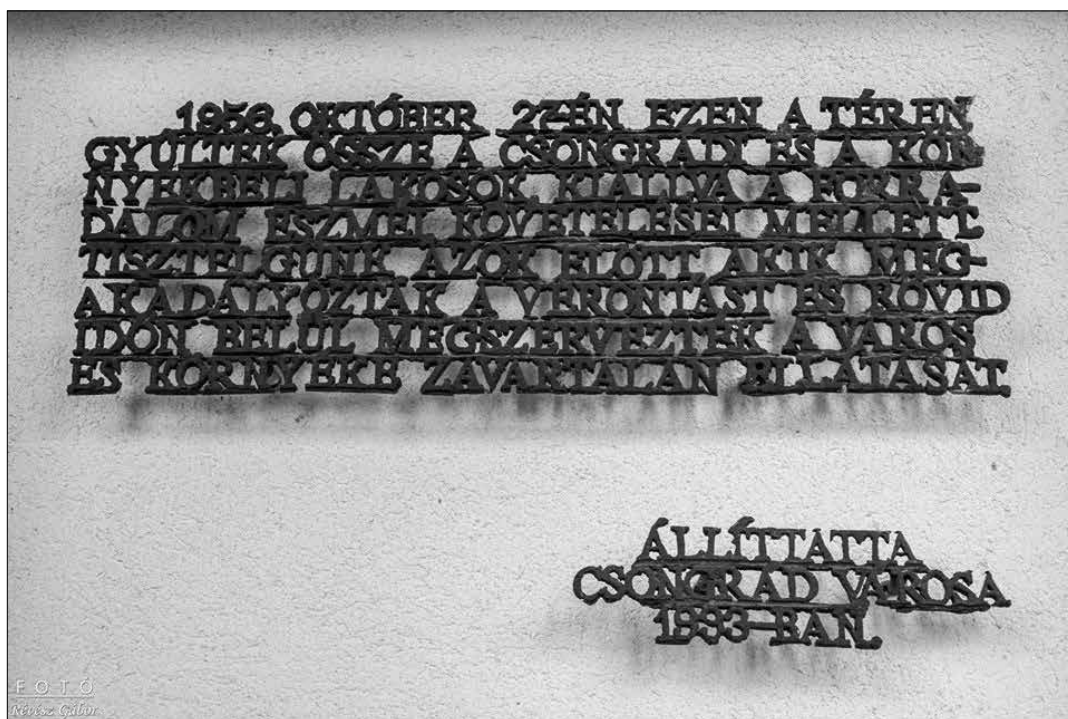 1956. OKTÓBER 27-ÉN EZEN A TÉREN
GYÜLTEK ÖSSZE A CSONGRÁDI ÉS A KÖR-
NYÉKBELI LAKOSOK KIÁLLVA A FORRA-
DALOM ESZMÉI KÖVETELÉSEI MELLETT
TISZTELGÜNK AZOK ELŐTT AKIK MEG-
AKADÁLYOZTÁK A VÉRONTÁST ÉS RÖVID
IDŐN BELÜL MEGSZERVEZTÉK A VÁROS
ÉS KÖRNYÉKE ZAVARTALAN ELLÁTÁSÁT
ÁLLÍTTATTA
CSONGRÁD VÁROSA
1993-BAN.
FOTÓ
Révész Gábor